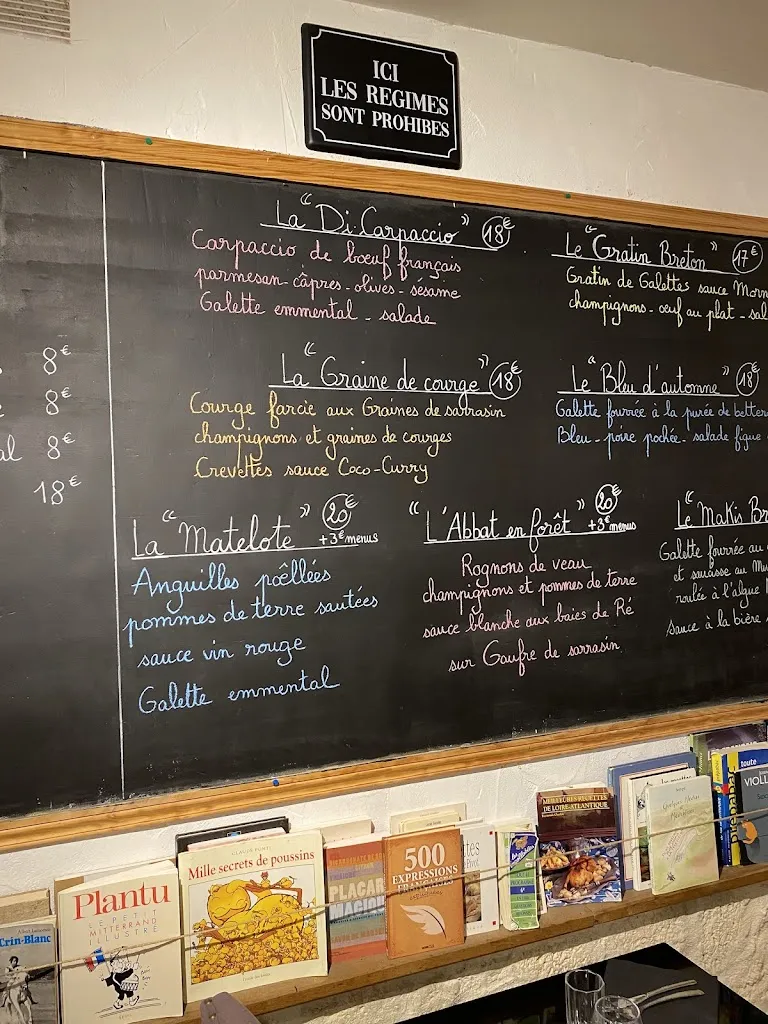 ICI
LES REGIMES
SONT PROHIBES
La "Di-Carpaccio" 18€
Carpaccio de bœuf français
parmesan - câpres - olives - sésame
Galette emmental - salade
Le "Gratin Breton" 17€
Gratin de Galettes sauce
champignons - œuf au plat -
La "Graine de courge" 18€
Courge farcie aux Graines de sarrasin
champignons et graines de courges
Crevettes sauce Coco-Curry
Le "Bleu d'automne" 18€
Galette fourrée à la purée de
Bleu - poire pochée - salade figue
8€
8€
8€
18€
La "Matelote" 20€
+3€ menus
Anguilles pœllées
pommes de terre sautées
sauce vin rouge
Galette emmental
"L'Abbat en forêt" 20€
+3€ menus
Rognons de veau
champignons et pommes de terre
sauce blanche aux baies de Ré
sur Gaufre de sarrasin
Le "Makis
Galette fourrée au
et
roulée à l'algue
sauce à la bière
Crin-Blanc
Plantu
LE PETIT
MITTERRAND
ILLUSTRÉ
CLAUDE PONTI
Mille secrets de poussins
500
EXPRESSIONS
FRANÇAISES
MEILLEURES RECETTES
DE LOIRE-ATLANTIQUE
toute